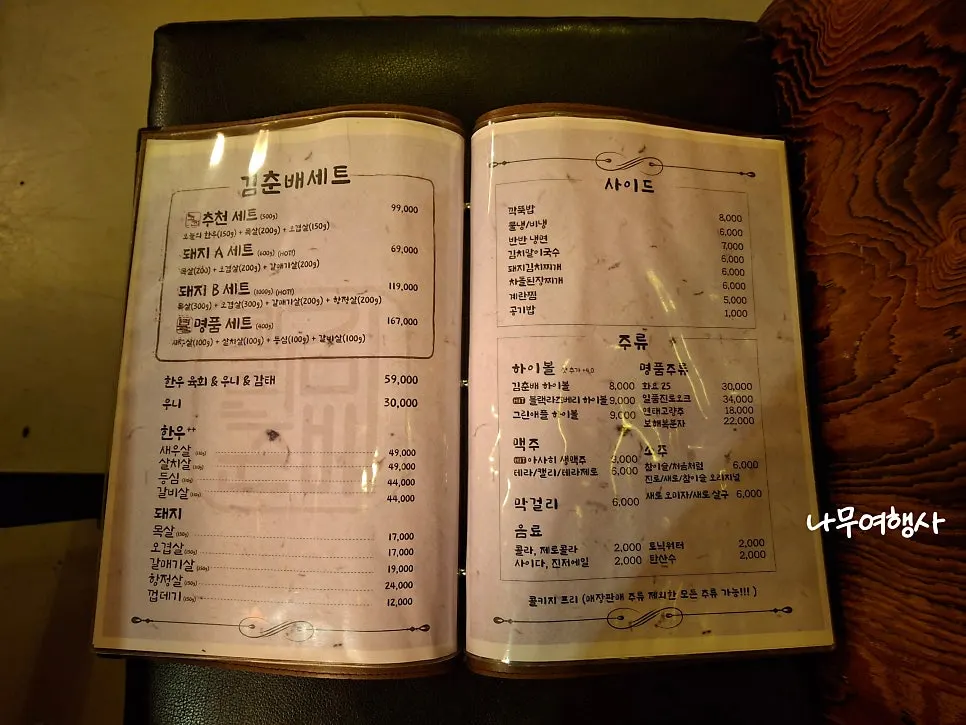 김춘배세트
추천 세트 (500g) 99,000
오늘의 한우(150g) + 목살(200g) + 오겹살(150g)
돼지 A 세트 (600g) (HOT!) 69,000
목살(200) + 오겹살(200g) + 갈매기살(200g)
돼지 B 세트 (1000g) (HOT!) 119,000
목살(300g) + 오겹살(300g) + 갈매기살(200g) + 항정살(200g)
명품 세트 (400g) 167,000
새우살(100g) + 살치살(100g) + 등심(100g) + 갈비살(100g)
한우 육회 & 우니 & 감태 59,000
우니 30,000
한우++
새우살 49,000
살치살 49,000
등심 44,000
갈비살 44,000
돼지
목살 (150g) 17,000
오겹살 (150g) 17,000
갈매기살 (150g) 19,000
항정살 (150g) 24,000
껍데기 (150g) 12,000
사이드
깍뚝밥 8,000
물냉/비냉 6,000
반반 냉면 7,000
김치말이국수 6,000
돼지김치찌개 6,000
차돌된장찌개 6,000
계란찜 5,000
공기밥 1,000
주류
하이볼
김춘배 하이볼 8,000
HIT 블랙라즈베리 하이볼 9,000
그린애플 하이볼 9,000
명품주류
화요 25 30,000
일품진로오크 34,000
연태고량주 18,000
보해복분자 22,000
맥주
HIT 아사히 생맥주 9,000
테라/켈리/테라제로 6,000
소주
참이슬/처음처럼 6,000
진로/새로/참이슬 오리지널
새로 오미자/새로 살구 6,000
막걸리 6,000
음료
콜라, 제로콜라 2,000
사이다, 진저에일 2,000
토닉워터 2,000
탄산수 2,000
콜키지 프리 (매장판매 주류 제외한 모든 주류 가능!!! )
나무여행사